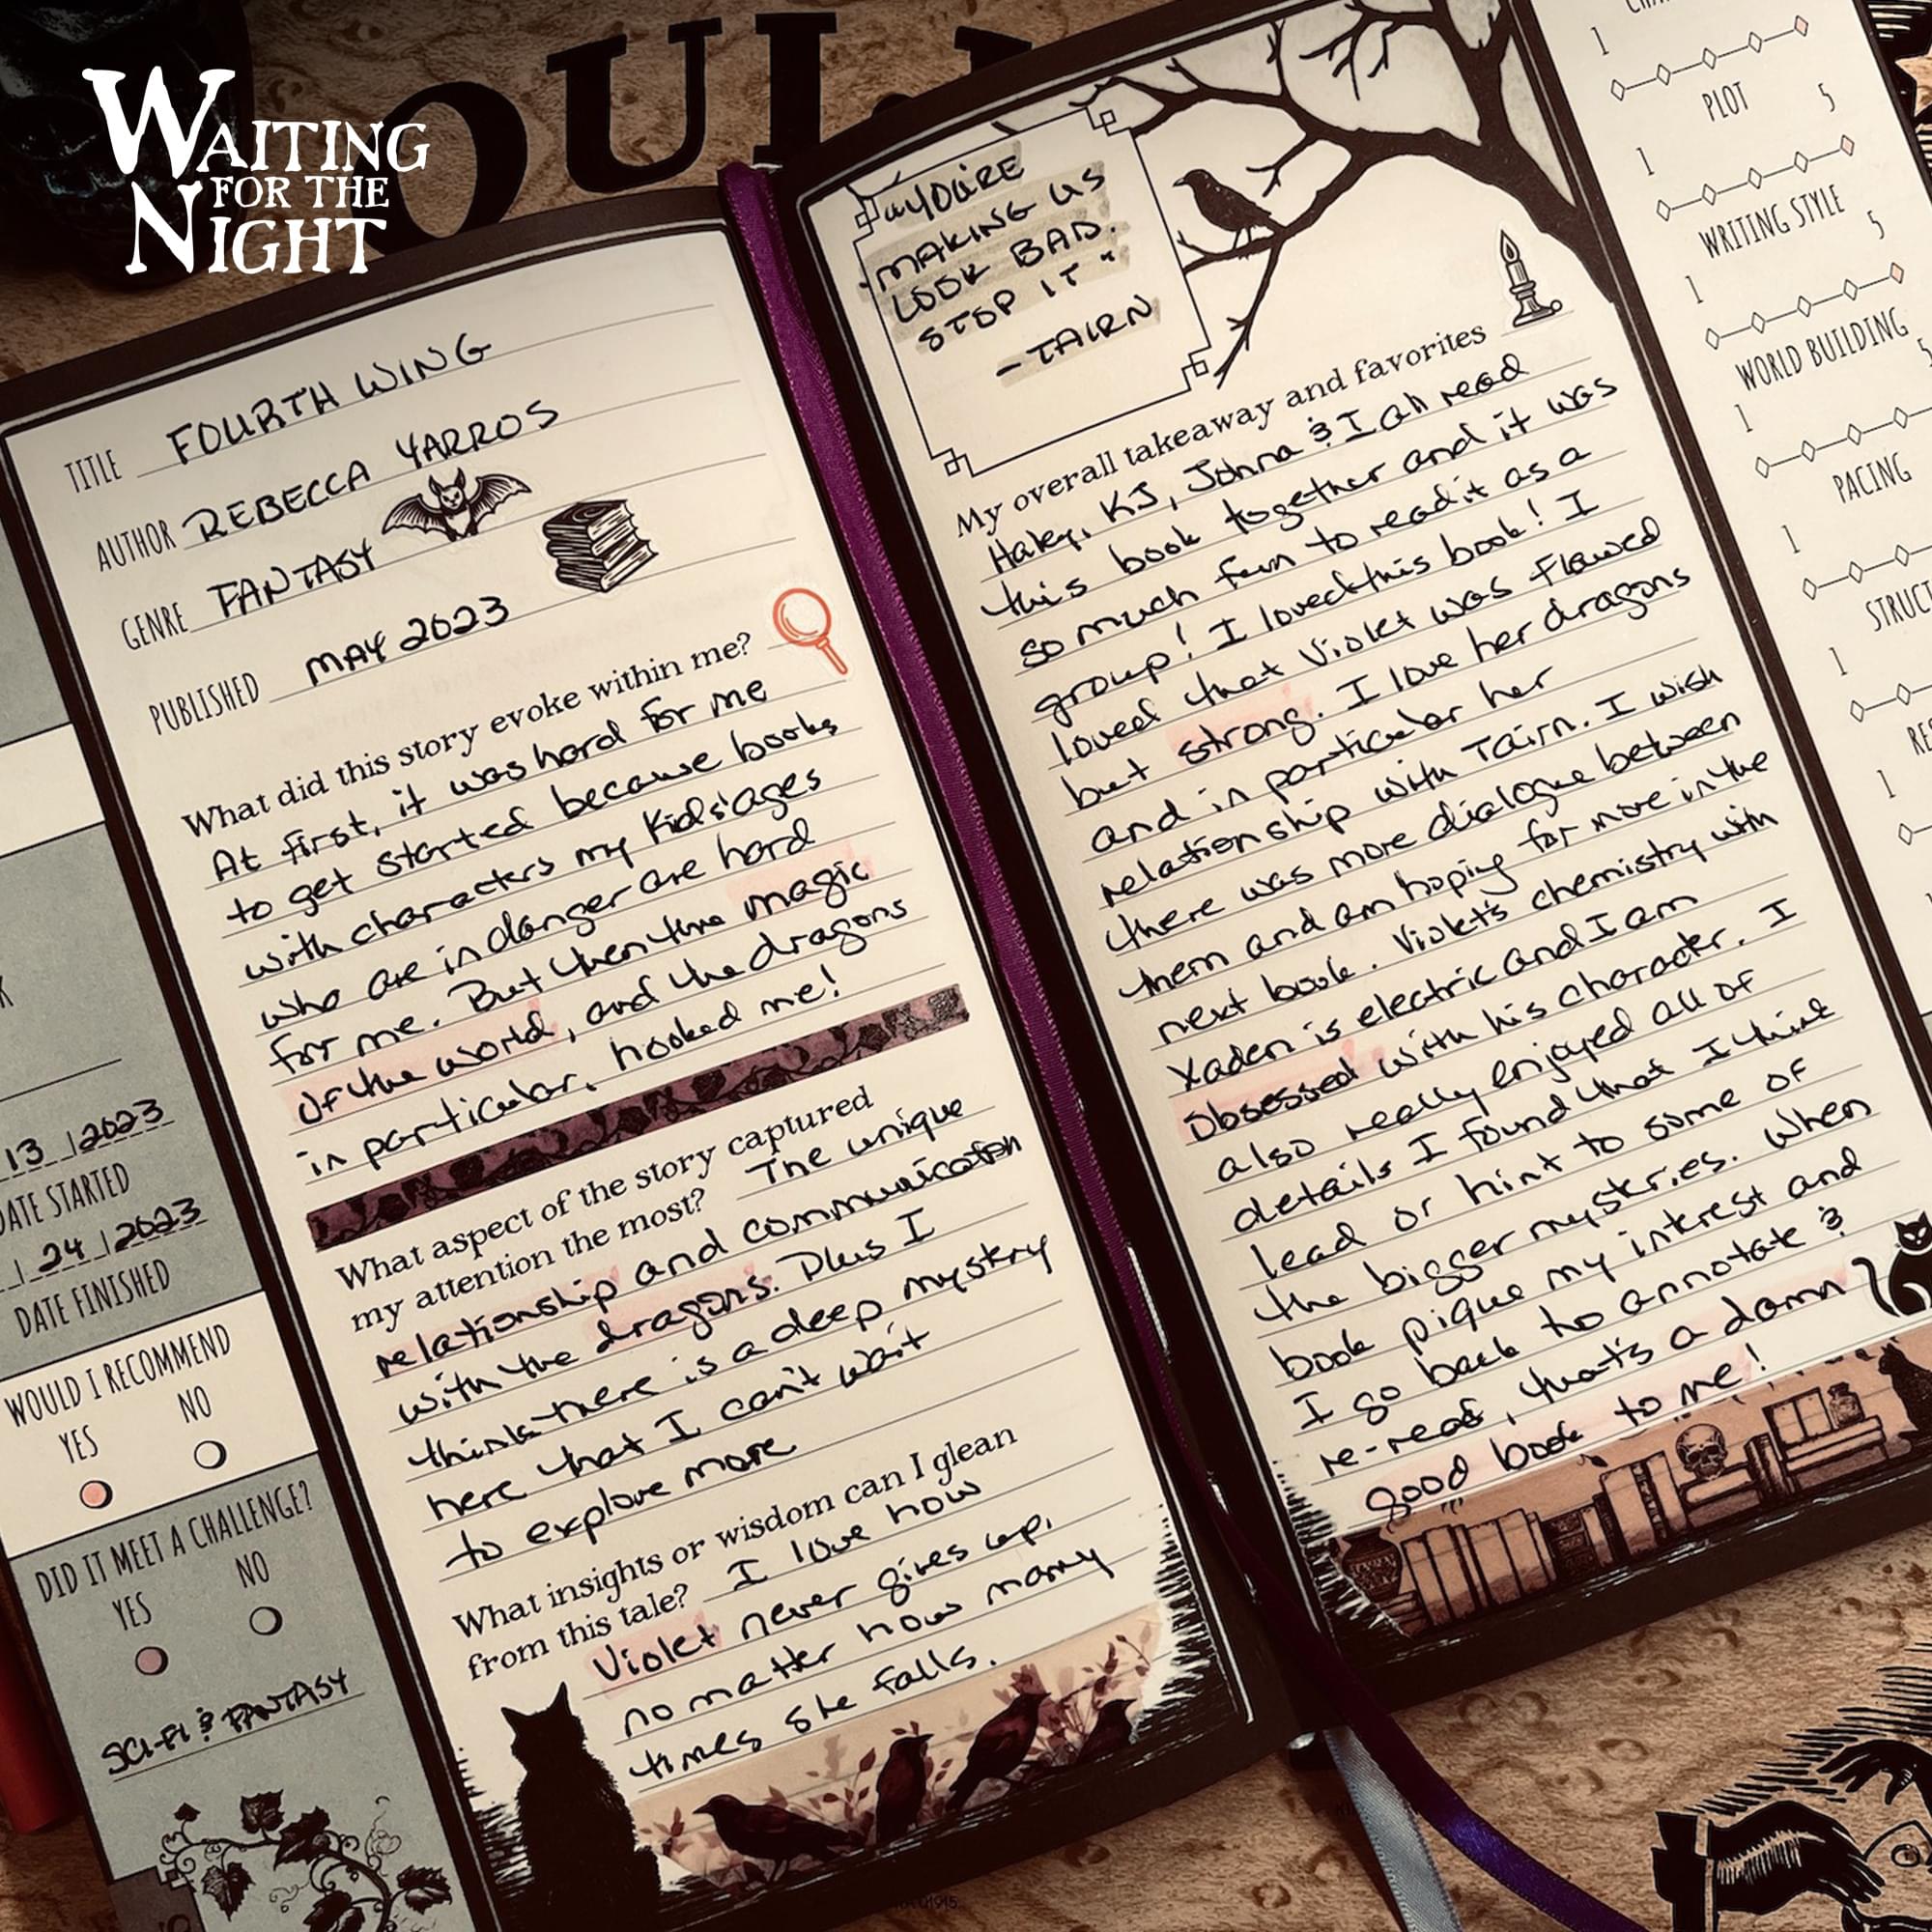 WAITING
FOR THE
NIGHT
OUI
13 | 2023
DATE STARTED
| 24 | 2023
DATE FINISHED
WOULD I RECOMMEND
YES NO
DID IT MEET A CHALLENGE?
YES NO
SCI-FI & FANTASY
TITLE FOURTH WING
AUTHOR REBECCA YARROS
GENRE FANTASY
PUBLISHED MAY 2023
What did this story evoke within me?
At first, it was hard for me
to get started because books
with characters my kids' ages
who are in danger are hard
for me. But then the magic
of the world, and the dragons
in particular, hooked me!
What aspect of the story captured
my attention the most? The unique
relationship and communication
with the dragons. Plus I
think there is a deep mystery
here that I can't wait
to explore more
What insights or wisdom can I glean
from this tale? I love how
Violet never gives up,
no matter how many
times she falls.
"YOU'RE
MAKING US
LOOK BAD.
STOP IT"
- TAIRN
My overall takeaway and favorites
Haley, KJ, Johna & I all read
this book together and it was
so much fun to read it as a
group! I loved this book! I
loved that Violet was flawed
but strong. I love her dragons
and in particular her
relationship with Tairn. I wish
there was more dialogue between
them and am hoping for more in the
next book. Violet's chemistry with
Xaden is electric and I am
obsessed with his character. I
also really enjoyed all of
details I found that I think
lead or hint to some of
the bigger mysteries. When
book pique my interest and
I go back to annotate &
re-read, that's a damn
good book to me!
1
PLOT 5
1
WRITING STYLE 5
1
WORLD BUILDING 5
1
PACING
1
STRUCT
1
RE
1